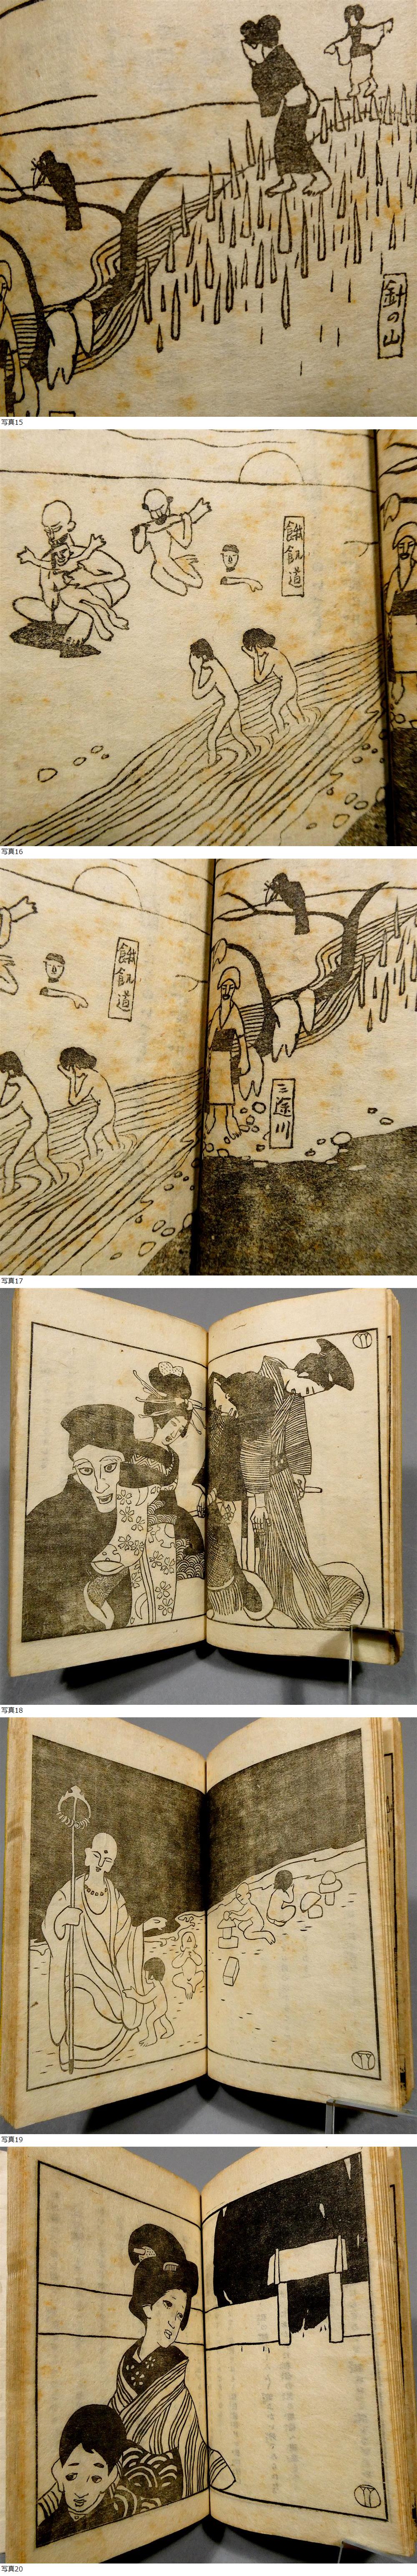 針の山
写真15
餓飢道
写真16
餓飢道
三途川
写真17
写真18
写真19
写真20